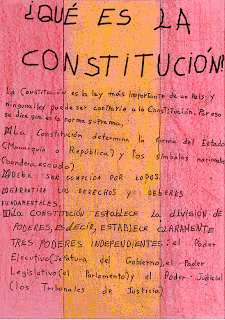 ¿QUÉ ES LA
CONSTITUCIÓN?
La Constitución es la ley más importante de un País y
ninguna ley puede ser contraria a la Constitución. Por eso
se dice que es la norma suprema.
La Constitución determina la forma del Estado
(Monarquía o República) y los símbolos nacionales
(bandera, escudo)
DEBE SER CUMPLIDA POR TODOS.
GARANTIZA LOS DERECHOS Y DEBERES
FUNDAMENTALES.
LA CONSTITUCIÓN ESTABLECE LA DIVISIÓN DE
PODERES, ES DECIR, ESTABLECE CLARAMENTE
TRES PODERES INDEPENDIENTES: el Poder
Ejecutivo (Jefatura del Gobierno), el Poder
Legislativo (el Parlamento) y el Poder Judicial
(los Tribunales de Justicia)